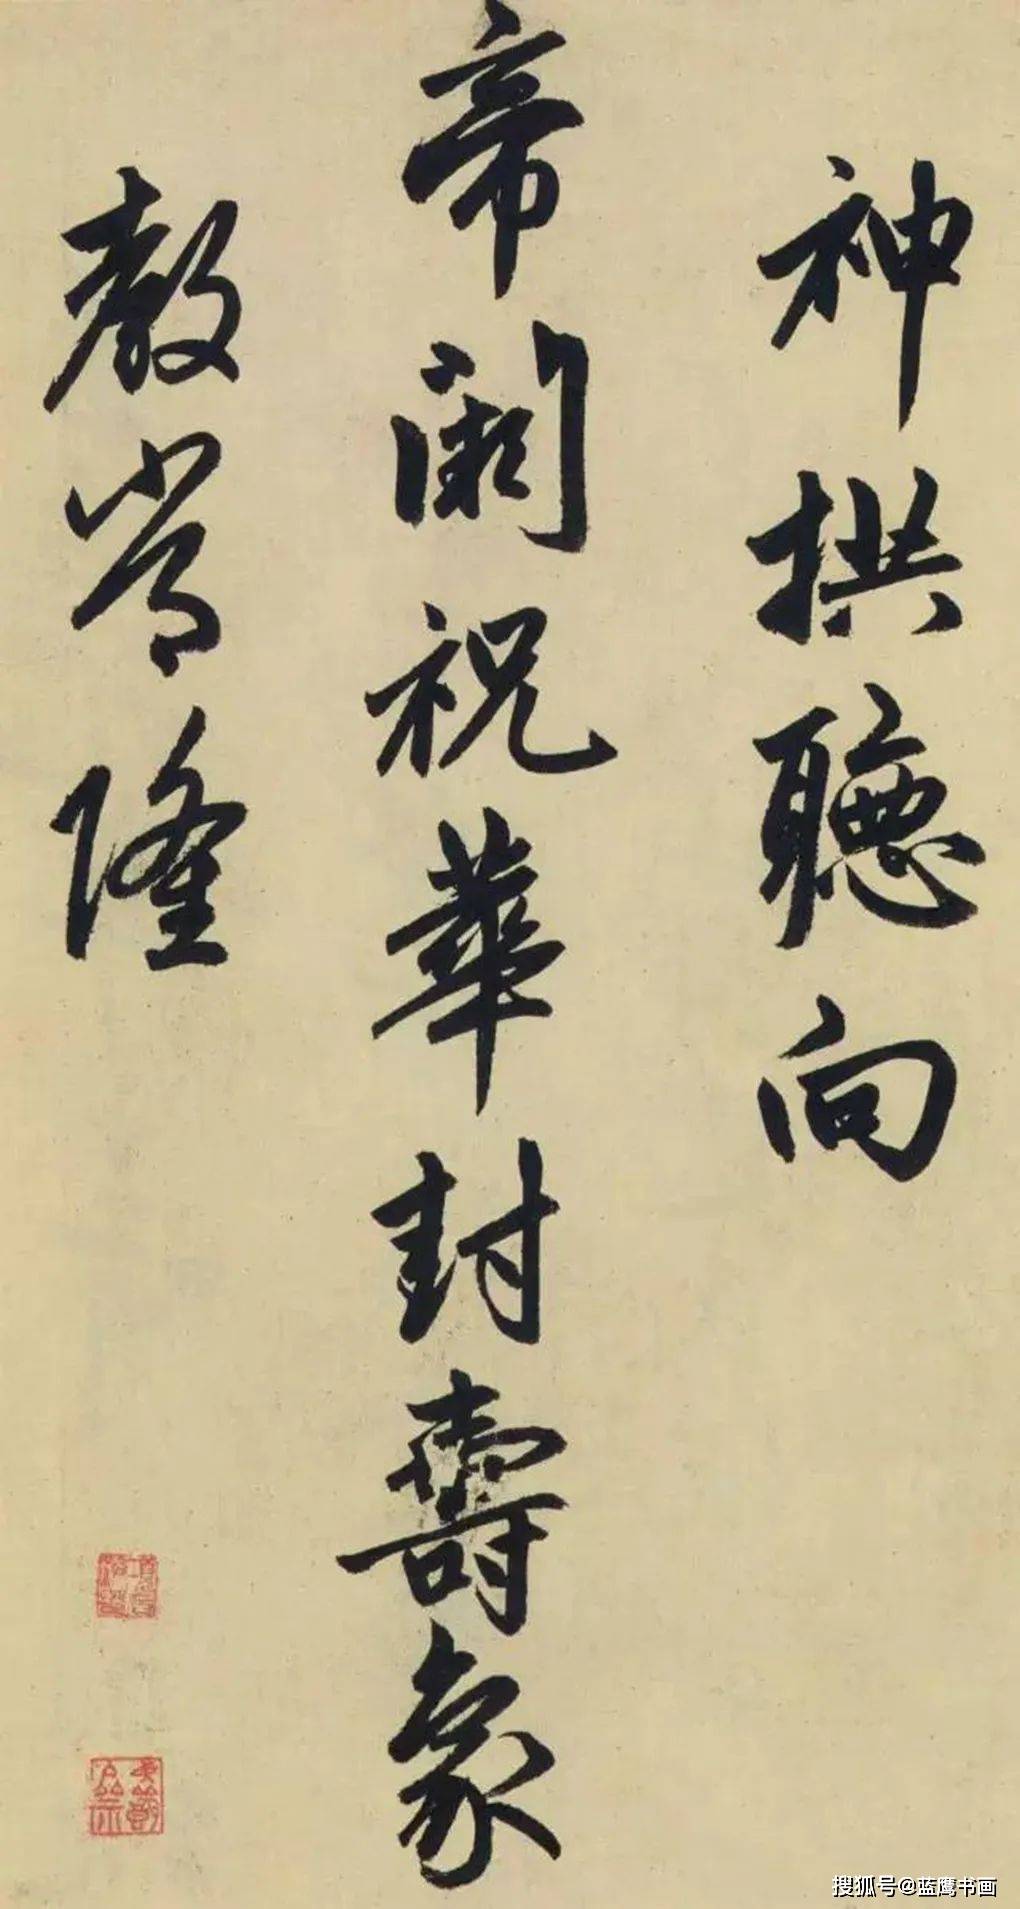 神拱聽向
帝闕祝華封壽象
教常隆
搜狐号@蓝鹰书画